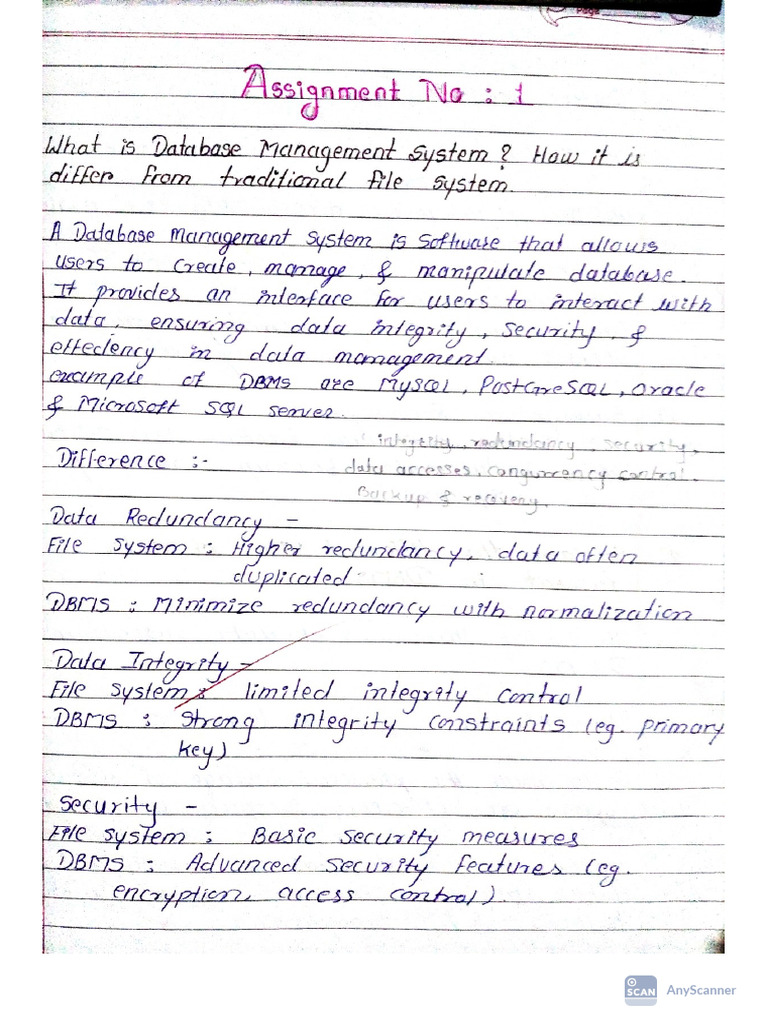 Page
Assignment No : 1
What is Database Management System ? How it is
differ from traditional file system
A Database Management System is Software that allows
users to create, manage, & manipulate database.
It provides an interface for users to interact with
data, ensuring data integrity, security, &
effeciency in data management.
example of DBMS are MySQL, PostGreSQL, Oracle
& Microsoft SQL server.
( integrity, redundancy, security,
Difference :-
data accesses, congurrency control.
Backup & recovery.
Data Redundancy -
File system : Higher redundancy, data often
duplicated
DBMS : Minimize redundancy with normalization
Data Integrity -
File system : limited integrity control
DBMS : Strong integrity constraints (eg. primary
key)
Security -
File system : Basic security measures
DBMS : Advanced security features (eg.
encryption, access control).
SCAN AnyScanner